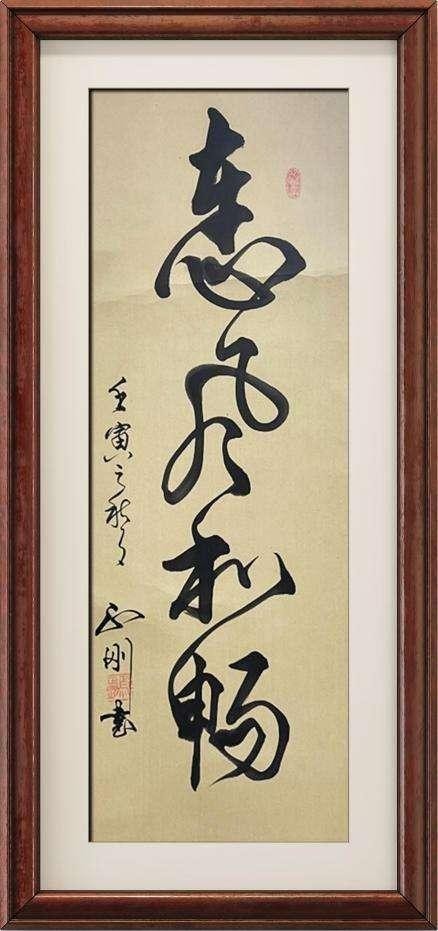 惠风和畅
壬寅之秋月
正刚书